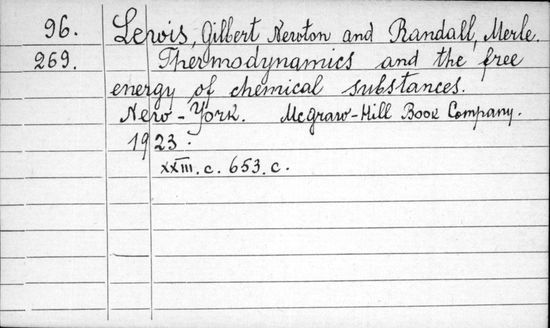 96. Lewis, Gilbert Newton and Randall, Merle.
269. Thermodynamics and the free
energy of chemical substances.
New-York. McGraw-Hill Book Company.
1923.
XXIII. c. 653. c.